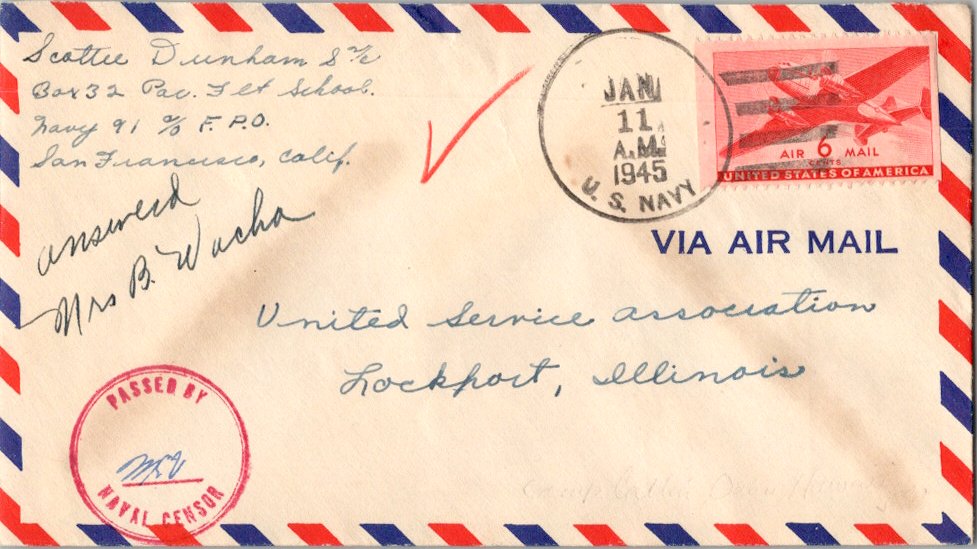 Scottie Dunham S 2/c
Box 32 Pac. Flt School.
Navy 91 c/o F.P.O.
San Francisco, Calif.
answered
Mrs B. Wacha
JAN
11
A.M.
1945
U. S. NAVY
AIR 6 MAIL
CENTS
UNITED STATES OF AMERICA
VIA AIR MAIL
United Service Association
Lockport, Illinois
PASSED BY
NAVAL CENSOR